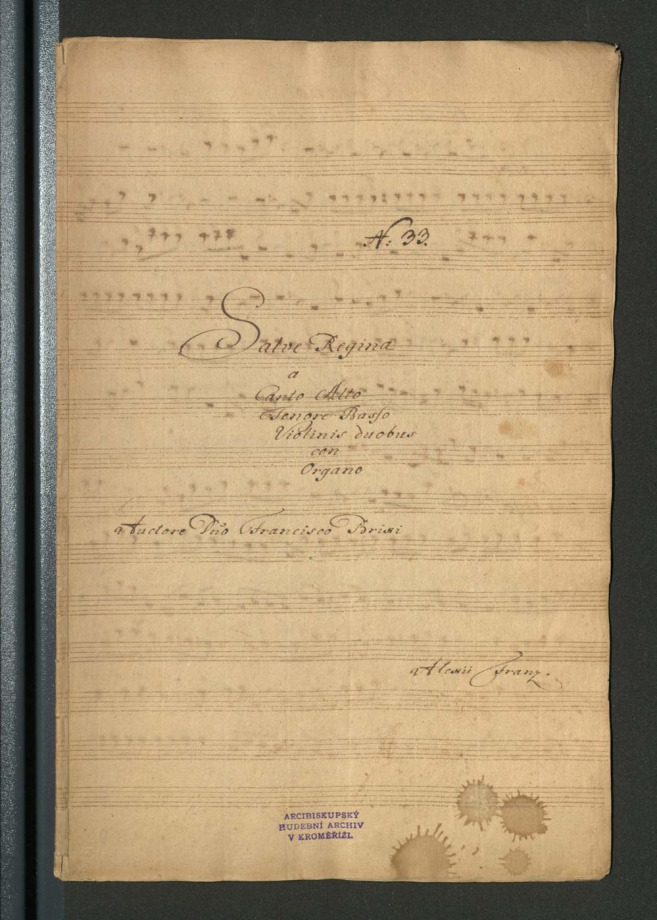 N: 33.
Salve Regina
a
Canto Alto
Tenore Basso
Violinis duobus
con
Organo
Auctore Dño Francisco Brixi
Alexii Franz.
ARCIBISKUPSKÝ
HUDEBNÍ ARCHIV
V KROMĚŘÍŽI.